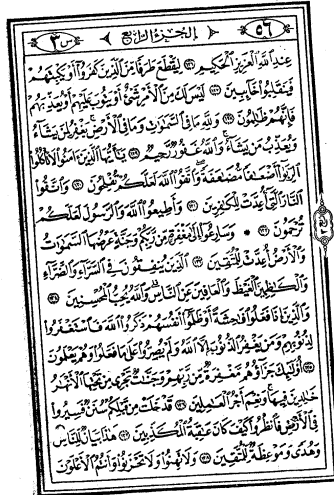 ٥٦ الجزء الرابع س ٣
عِندِ ٱللَّهِ ٱلْعَزِيزِ ٱلْحَكِيمِ لِيَقْطَعَ طَرَفًا مِّنَ ٱلَّذِينَ كَفَرُوٓا۟ أَوْ يَكْبِتَهُمْ
فَيَنقَلِبُوا۟ خَآئِبِينَ لَيْسَ لَكَ مِنَ ٱلْأَمْرِ شَىْءٌ أَوْ يَتُوبَ عَلَيْهِمْ أَوْ يُعَذِّبَهُمْ
فَإِنَّهُمْ ظَٰلِمُونَ وَلِلَّهِ مَا فِى ٱلسَّمَٰوَٰتِ وَمَا فِى ٱلْأَرْضِ يَغْفِرُ لِمَن يَشَآءُ
وَيُعَذِّبُ مَن يَشَآءُ وَٱللَّهُ غَفُورٌ رَّحِيمٌ يَٰٓأَيُّهَا ٱلَّذِينَ ءَامَنُوا۟ لَا تَأْكُلُوا۟
ٱلرِّبَوٰٓا۟ أَضْعَٰفًا مُّضَٰعَفَةً وَٱتَّقُوا۟ ٱللَّهَ لَعَلَّكُمْ تُفْلِحُونَ وَٱتَّقُوا۟
ٱلنَّارَ ٱلَّتِىٓ أُعِدَّتْ لِلْكَٰفِرِينَ وَأَطِيعُوا۟ ٱللَّهَ وَٱلرَّسُولَ لَعَلَّكُمْ
تُرْحَمُونَ * وَسَارِعُوٓا۟ إِلَىٰ مَغْفِرَةٍ مِّن رَّبِّكُمْ وَجَنَّةٍ عَرْضُهَا ٱلسَّمَٰوَٰتُ
وَٱلْأَرْضُ أُعِدَّتْ لِلْمُتَّقِينَ ٱلَّذِينَ يُنفِقُونَ فِى ٱلسَّرَّآءِ وَٱلضَّرَّآءِ
وَٱلْكَٰظِمِينَ ٱلْغَيْظَ وَٱلْعَافِينَ عَنِ ٱلنَّاسِ وَٱللَّهُ يُحِبُّ ٱلْمُحْسِنِينَ
وَٱلَّذِينَ إِذَا فَعَلُوا۟ فَٰحِشَةً أَوْ ظَلَمُوٓا۟ أَنفُسَهُمْ ذَكَرُوا۟ ٱللَّهَ فَٱسْتَغْفَرُوا۟
لِذُنُوبِهِمْ وَمَن يَغْفِرُ ٱلذُّنُوبَ إِلَّا ٱللَّهُ وَلَمْ يُصِرُّوا۟ عَلَىٰ مَا فَعَلُوا۟ وَهُمْ يَعْلَمُونَ
أُو۟لَٰٓئِكَ جَزَآؤُهُم مَّغْفِرَةٌ مِّن رَّبِّهِمْ وَجَنَّٰتٌ تَجْرِى مِن تَحْتِهَا ٱلْأَنْهَٰرُ
خَٰلِدِينَ فِيهَا وَنِعْمَ أَجْرُ ٱلْعَٰمِلِينَ قَدْ خَلَتْ مِن قَبْلِكُمْ سُنَنٌ فَسِيرُوا۟
فِى ٱلْأَرْضِ فَٱنظُرُوا۟ كَيْفَ كَانَ عَٰقِبَةُ ٱلْمُكَذِّبِينَ هَٰذَا بَيَانٌ لِّلنَّاسِ
وَهُدًى وَمَوْعِظَةٌ لِّلْمُتَّقِينَ وَلَا تَهِنُوا۟ وَلَا تَحْزَنُوا۟ وَأَنتُمُ ٱلْأَعْلَوْنَ